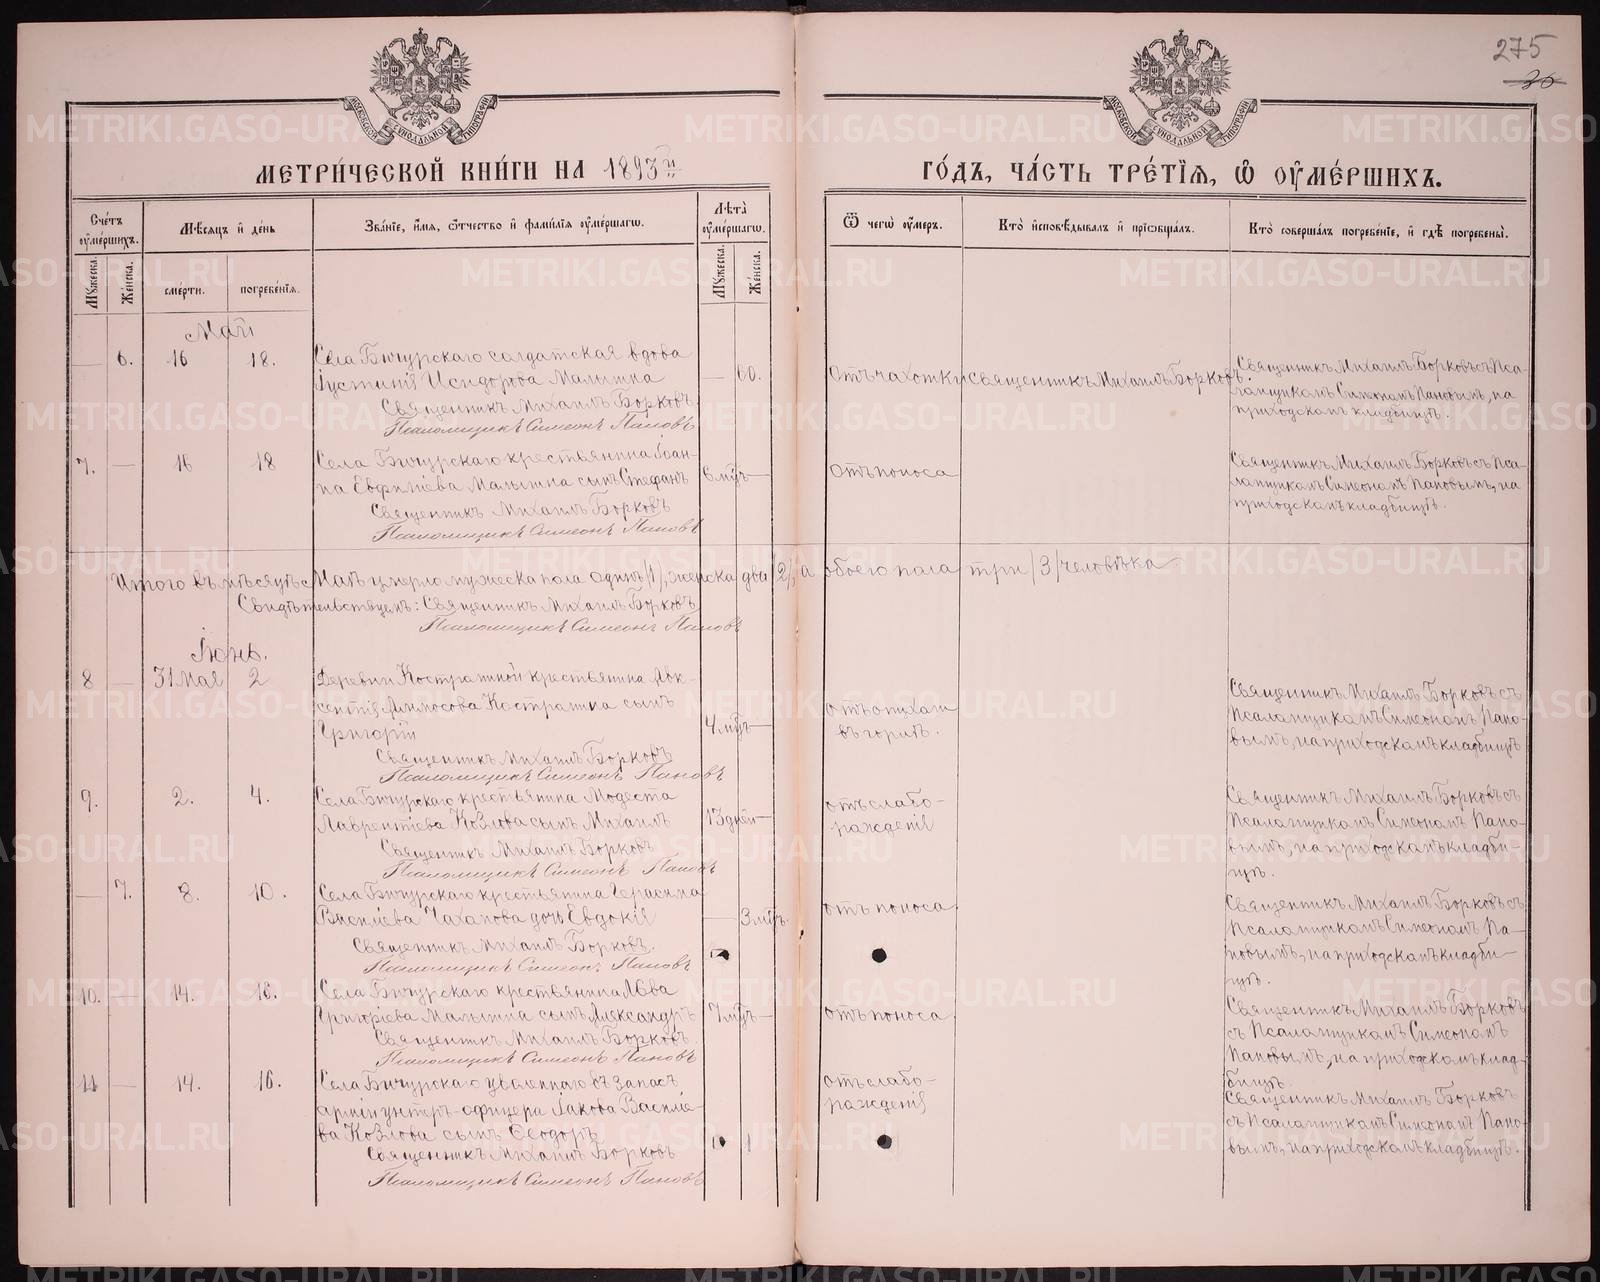 275
30
МОСКОВСКОЙ СУНОДАЛЬНОЙ ТИПОГРАФІИ
МОСКОВСКОЙ СУНОДАЛЬНОЙ ТИПОГРАФІИ
МЕТРИ́ЧЕСКОЙ КНИ́ГИ НА 1893й
ГО́ДЪ, ЧА́СТЬ ТРЕ́ТІѦ, Ѿ ОУМЕ́РШИХЪ.
Сче́тъ оуме́ршихъ.
Мѣ́сяцъ и҆ де́нь
Зва́нїе, и҆́мѧ, ѻ҆́тчество и҆ фамѝлїѧ оуме́ршагѡ.
Лѣ́та оуме́ршагѡ.
Ѿ чегѡ̀ оу́меръ.
Кто̀ и҆сповѣ́дывалъ и҆ прїѡбща́лъ.
Кто̀ соверша́лъ погребе́нїе, и҆ гдѣ̀ погребены̀.
Мꙋ́жеска.
Же́нска.
сме́рти.
погребе́нїѧ.
Мꙋ́жеска.
Же́нска.
Май
— 6. 16 18. Села Бичурскаго солдатская вдова
Іустинія Исидорова Малыгина — 60.
Священникъ Михаилъ Борковъ.
Псаломщикъ Симеонъ Пановъ
Отъ чахотки Священникъ Михаилъ Борковъ
Священникъ Михаилъ Борковъ съ Пса-
ломщикомъ Симеономъ Пановымъ, на
приходскомъ кладбищѣ.
7. — 16 18 Села Бичурскаго крестьянина Іоан-
на Евфиміева Малыгина сынъ Стефанъ 6 мѣ —
Священникъ Михаилъ Борковъ
Псаломщикъ Симеонъ Пановъ
Отъ поноса
Священникъ Михаилъ Борковъ съ Пса-
ломщикомъ Симеономъ Пановымъ, на
приходскомъ кладбищѣ.
Итого въ мѣсяцѣ Маѣ умерло мужеска пола одинъ /1/, женска два /2/, а обоего пола три /3/ человѣка
Свидѣтельствуемъ: Священникъ Михаилъ Борковъ
Псаломщикъ Симеонъ Пановъ
Іюнь.
8 — 31 Мая 2 Деревни Костратиной крестьянина Авк-
сентія Костратина сынъ
Григорій 4 мѣ —
Священникъ Михаилъ Борковъ
Псаломщикъ Симеонъ Пановъ
отъ
въ горлѣ.
Священникъ Михаилъ Борковъ съ
Псаломщикомъ Симеономъ Пано-
вымъ, на приходскомъ кладбищѣ
9. — 2. 4. Села Бичурскаго крестьянина Модеста
Лаврентіева Козлова сынъ Михаилъ 13 дней —
Священникъ Михаилъ Борковъ
Псаломщикъ Симеонъ Пановъ
отъ слабо-
рожденія
Священникъ Михаилъ Борковъ съ
Псаломщикомъ Симеономъ Пано-
вымъ, на приходскомъ кладби-
щѣ.
— 7. 8. 10. Села Бичурскаго крестьянина Герасима
Василіева дочь Евдокія — 3 мѣ.
Священникъ Михаилъ Борковъ.
Псаломщикъ Симеонъ Пановъ
отъ поноса
Священникъ Михаилъ Борковъ съ
Псаломщикомъ Симеономъ Па-
новымъ, на приходскомъ кладби-
щѣ.
10. — 14. 16. Села Бичурскаго крестьянина Льва
Григоріева Малыгина сынъ Александръ 7 мѣ —
Священникъ Михаилъ Борковъ.
Псаломщикъ Симеонъ Пановъ
отъ поноса
Священникъ Михаилъ Борковъ
съ Псаломщикомъ Симеономъ
Пановымъ, на приходскомъ клад-
бищѣ.
11 — 14. 16. Села Бичурскаго уволеннаго въ запасъ
арміи унтеръ-офицера Іакова Василіе-
ва Козлова сынъ Ѳеодоръ
Священникъ Михаилъ Борковъ
Псаломщикъ Симеонъ Пановъ
отъ слабо-
рожденія
Священникъ Михаилъ Борковъ
съ Псаломщикомъ Симеономъ Пано-
вымъ, на приходскомъ кладбищѣ.
METRIKI.GASO-URAL.RU